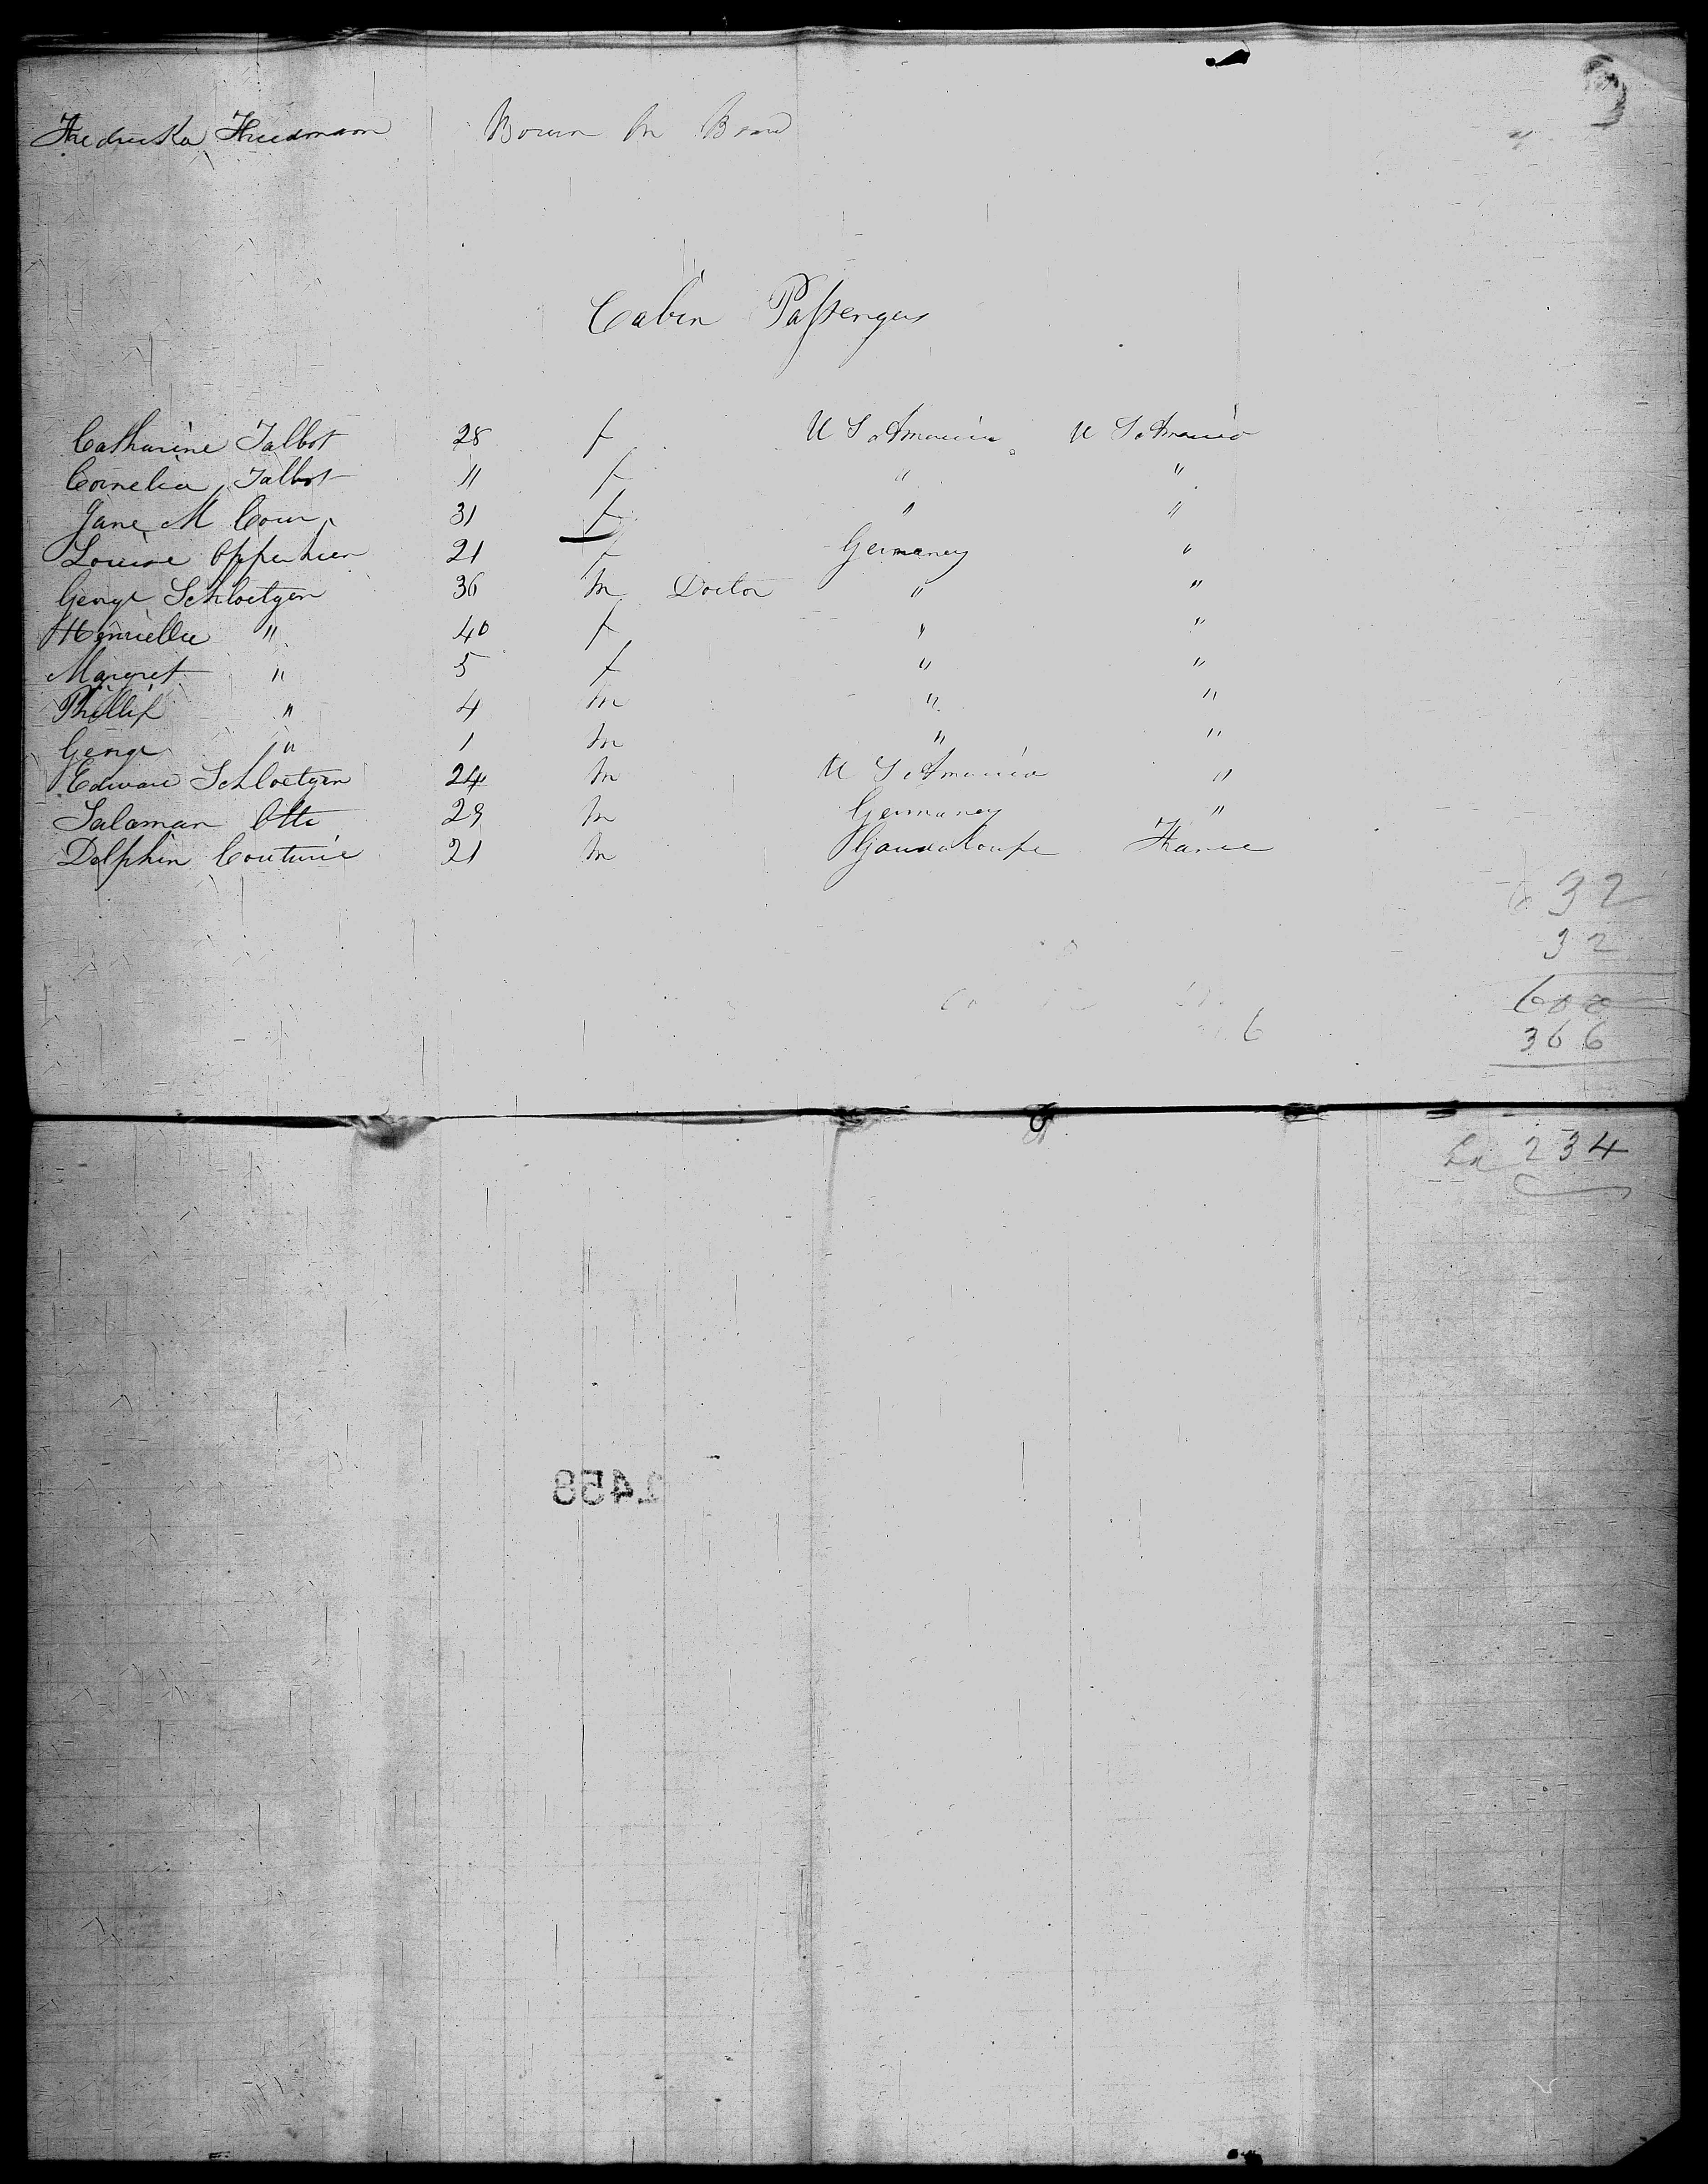 Fredricka Friedmann Bourn On Board
Cabin Passengers
Catharine Talbot 28 f U S America U S America
Cornelia Talbot 11 f " "
Jane M Cour 31 f " "
Louise Oppenhien 21 f Germaney "
George Schloetgen 36 m Doctor " "
Henriellie " 40 f " "
Margret " 5 f " "
Phillip " 4 m " "
George " 1 m " "
Edward Schloetgen 24 m U S America "
Salaman Otto 29 m Germaney "
Delphin Couturie 21 m Gaudaloupe France
32
32
600
366
6
234
2458